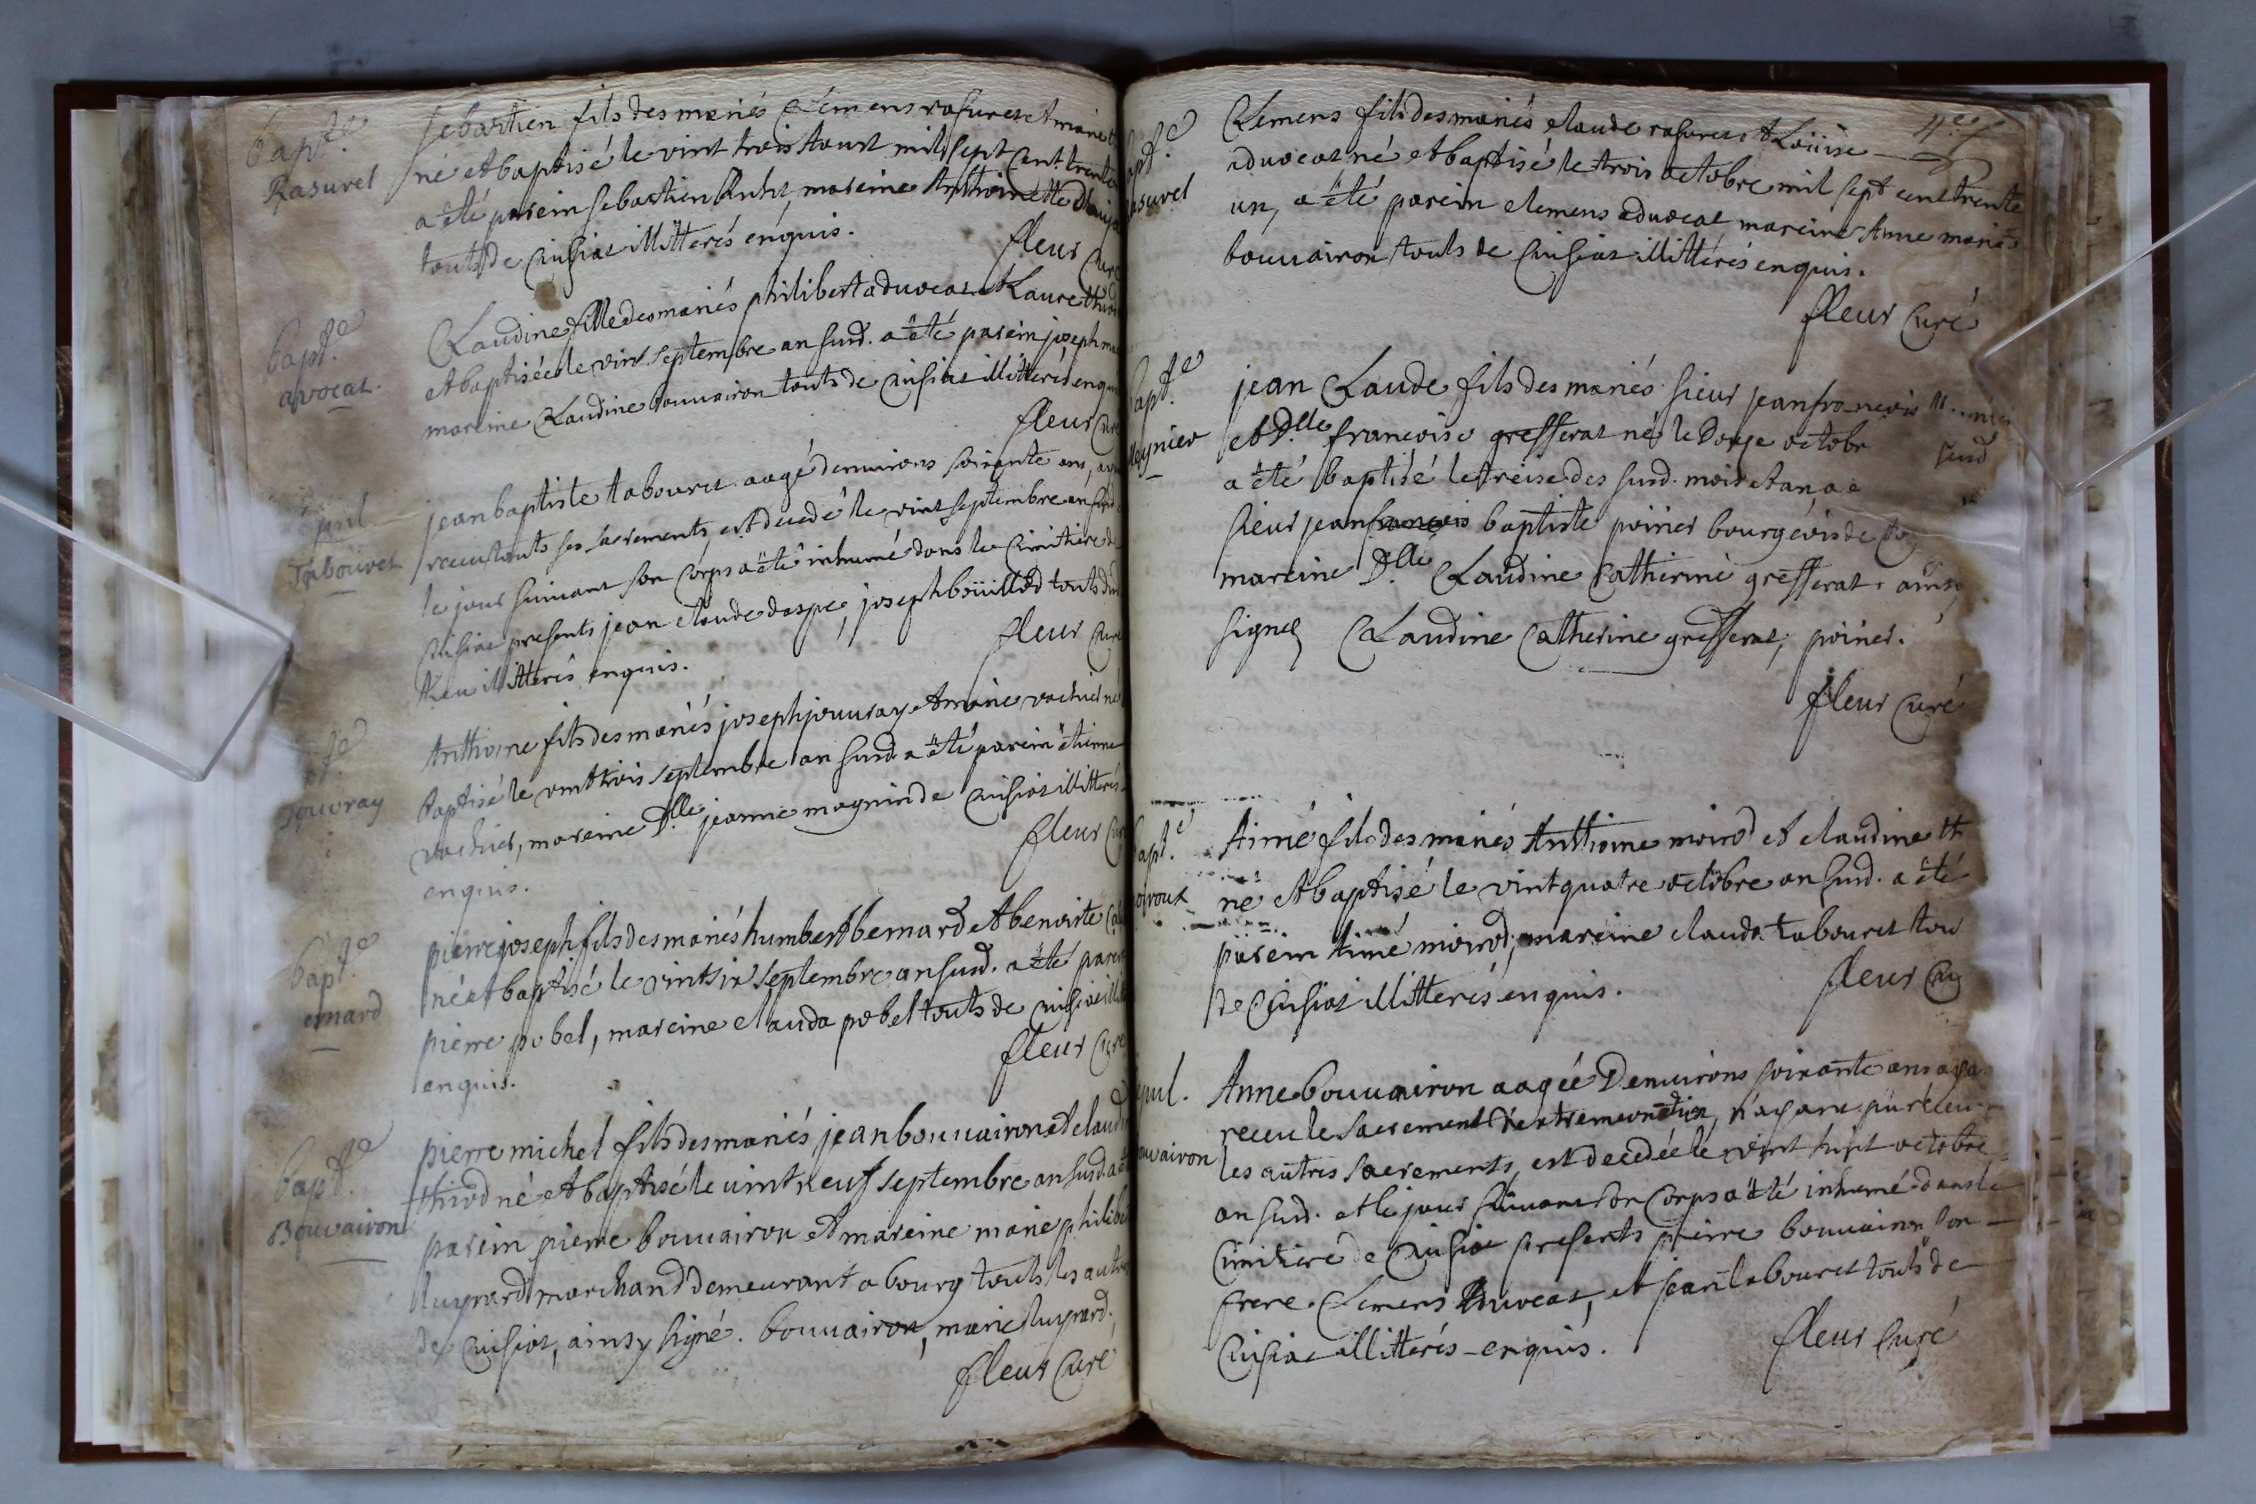 bapt.e
Rasurel
Sebastien fils des mariés Clemens rasurel et marie
né et baptisé le vint trois Aoust mil sept cent trente
a été parein Sebastien, mareine Anthoinette
touts de Cuisiat illitterés enquis.
fleur Curé
bapt.e
avocat.
Claudine fille des mariés philibert aduocat et Laure
et baptisée le vint septembre an susd. a été parein joseph
mareine Claudine bouuairon touts de Cuisiat illitterés enquis
fleur Curé
Tabouret
jean baptiste tabouret aagé d'enuirons soixante ans,
receu touts ses sacrements, est decedé le vint septembre an susd
le jour suiuant son Corps a été inhumé dans le Cimitiere de
Cuisiat presents jean claude daspe, joseph bouillod touts dud
lieu illitterés enquis.
fleur Curé
Jouvray
Anthoine fils des mariés joseph jouuray et marie vachier né
baptisé le vint trois septembre an susd. a été parein étienne
vachier, mareine D.lle jeanne magnin de Cuisiat illitterés
enquis.
fleur Curé
bapt.e
emard
pierre joseph fils des mariés humbert bernard et benoiste
né et baptisé le vint six septembre an susd. a été parein
pierre pobel, mareine clauda pobel touts de Cuisiat
enquis.
fleur Curé
bapt.e
Bouvairon
pierre michel fils des mariés jean bouuairon et claud
thivod né et baptisé le vint neuf septembre an susd a été
parein pierre bouuairon et mareine marie philibe
Nuyrard marchand demeurant a bourg touts les autres
de Cuisiat, ainsy signé. bouuairon, marie Nuyrard.
fleur Curé
apt.e
asurel
Clemens fils des mariés claude rasurel et Loüise
aduocat né et baptisé le trois octobre mil sept cent trente
un, a été parein clemens aduocat mareine Anne marie
bouuairon touts de Cuisiat illitterés enquis.
fleur Curé
bapt.e
eynier
jean Claude fils des mariés sieur jean francois
et D.lle francoise gresserat né le Doze octobr susd
a été baptisé le treise des susd. mois et an, a é
sieur jean francois baptiste poirier bourgeois de
mareine D.lle Claudine Catherine gresserat. ainsy
signé Claudine Catherine gresserat, poirier.
fleur Curé
bapt.e
Aimé fils des mariés Anthoine moirod et claudine th
né et baptisé le vint quatre octobre an susd. a été
parein Aimé moirod, mareine clauda tabouret tou
de Cuisiat illitterés enquis.
fleur Cu
pul.
ouvairon
Anne bouuairon aagée D'enuirons soixante ans aya
receu le sacrement d'extremeonction, n'ayant pü receu
les autres sacrements, est decedée le vint huit octobre
an susd. et le jour suiuant son Corps a été inhumé dans le
Cimitiere de Cuisiat presents pierre bouuairon son
frere. Clemens Aduocat, et jean tabouret touts de
Cuisiat illitterés enquis.
fleur Curé